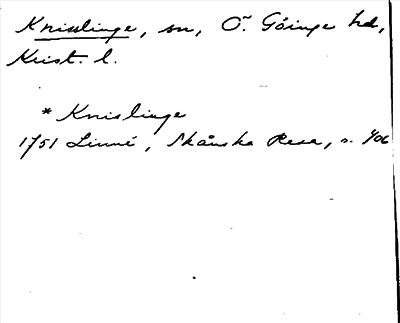 Knislinge, sn, Ö. Göinge hd,
Krist. l.
* Knislinge
1751 Linné, Skånska Resa, s. 406